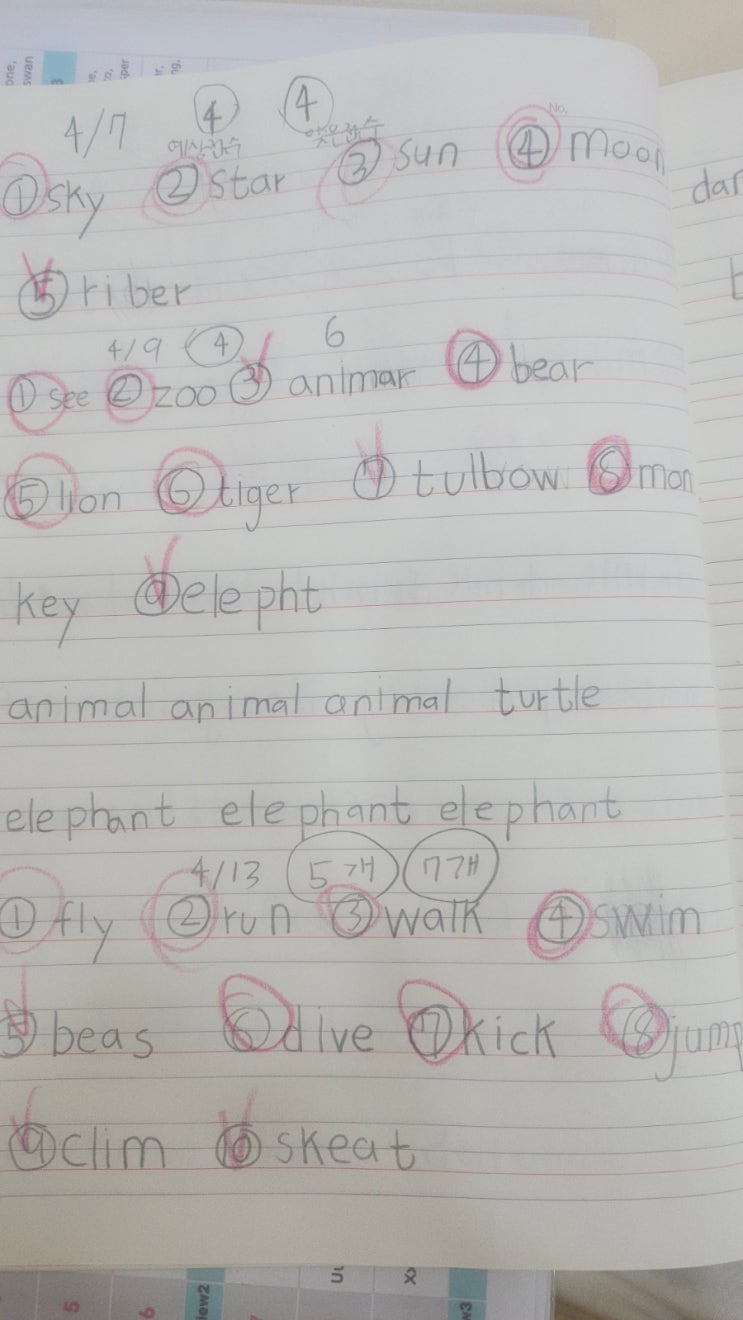 one,
swan
4/7 ④ ④
예상한수 맞은한수
No.
①sky ②star ③sun ④moon
dar
⑤riber
4/9 ④ 6
①see ②zoo ③animar ④bear
⑤lion ⑥tiger ⑦tulbow ⑧mon
key ⑨elepht
animal animal animal turtle
elephant elephant elephant
4/13 5개 7개
①fly ②run ③walk ④swim
⑤beas ⑥dive ⑦kick ⑧jump
⑨clim ⑩skeat
5 6 iew2 w3